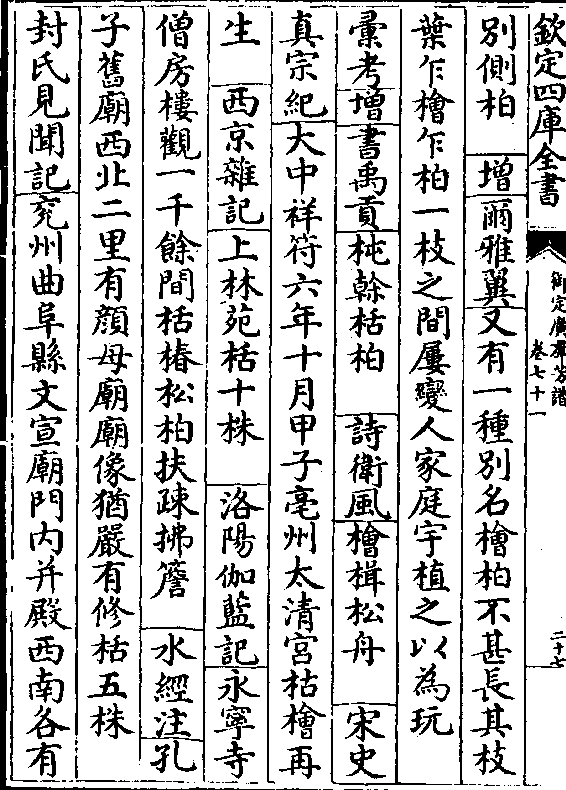 欽定四庫全書
御定廣羣芳譜
卷七十一
二十七
別側柏　增爾雅翼又有一種別名檜柏不甚長其枝
葉乍檜乍柏一枝之間屢變人家庭宇植之以為玩
彚考增書禹貢杶榦栝柏　詩衛風檜楫松舟　宋史
真宗紀大中祥符六年十月甲子亳州太清宮枯檜再
生　西京雜記上林苑栝十株　洛陽伽藍記永寧寺
僧房樓觀一千餘間栝椿松柏扶疎拂簷　水經注孔
子舊廟西北二里有顔母廟廟像猶嚴有修栝五株
封氏見聞記兗州曲阜縣文宣廟門内并殿西南各有